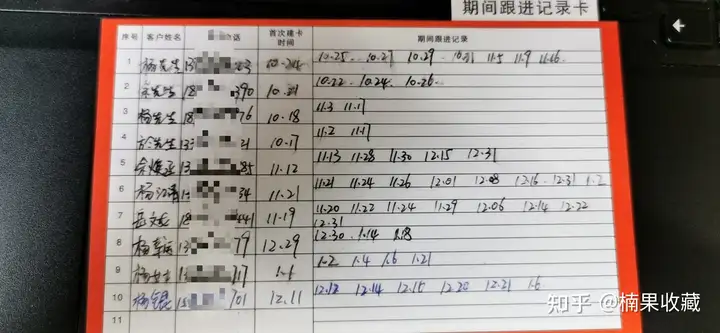 期间跟进记录卡
序号 客户姓名 话 首次建卡时间 期间跟进记录
1 杨先生 13 83 10.24 10.25 10.27 10.29 10.31 11.5 11.9 11.16
2 先生 18 390 10.21 10.22 10.24 10.26
3 杨先生 18 76 10.18 11.3 11.17
4 先生 133 21 10.17 11.2 11.17
5 余 85 11.12 11.13 11.28 11.30 12.15 12.31
6 杨江 34 11.21 11.21 11.24 11.26 12.01 12.08 12.16 12.31 1.2
7 岳文 18 441 11.19 11.20 11.22 11.24 11.29 12.06 12.14 12.22
12.31
8 杨 13 79 12.29 12.30 1.14 1.18
9 杨女士 13 117 1.2 1.4 1.6 1.21
10 杨 701 12.11 12.12 12.14 12.15 12.20 12.21 1.6
11
知乎 @楠果收藏